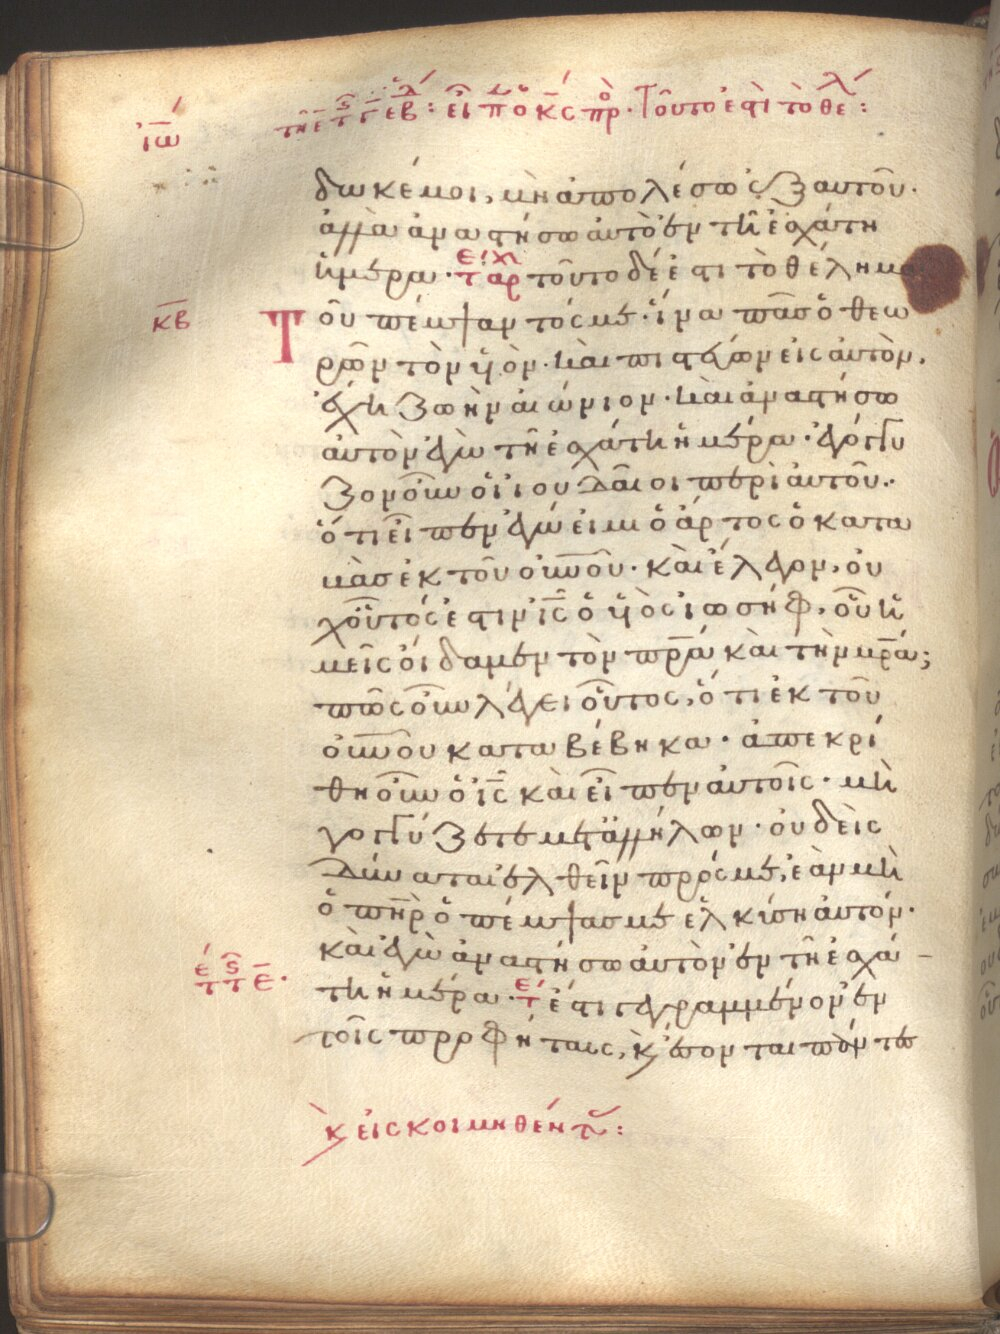 ἰω τῆ ε τ ς τ γ εβδ: εἶπ ὁ κς πρὸ. Τοῦτο ἐστὶ τὸ θελ:
δωκέ μοι, μὴ ἀπολέσω ἐξ αὐτοῦ.
ἀλλὰ ἀναστήσω αὐτὸ ἐν τῆ ἐσχάτη
ἡμέρα. τοῦτο δέ ἐστι τὸ θέλημα
κβ Τοῦ πέμψαντός με. ἵνα πᾶσ ὁ θεω
ρῶν τὸν ὑὸν. καὶ πιστεύων εἰς αὐτὸν,
ἔχη ζωὴν αἰώνιον. καὶ ἀναστήσω
αὐτὸν ἐγὼ τῆ ἐσχάτη ἡμέρα. ἐγόγγυ
ζον οὖν οἱ ἰουδαῖοι περὶ αὐτοῦ.
ὅτι εἶπεν ἐγώ εἰμι ὁ ἄρτος ὁ κατα
βὰσ ἐκ τοῦ οὐνοῦ. καὶ ἔλεγον, οὐ
χ οὗτός ἐστιν ἰς ὁ ὑὸς ἰωσὴφ, οὗ ἡ
μεῖς οἴδαμεν τὸν πρα καὶ τὴν μρα;
πῶς οὖν λέγει οὗτος, ὅτι ἐκ τοῦ
οὐνοῦ καταβέβηκα. ἀπεκρί
θη οὖν ὁ ἰς καὶ εἶπεν αὐτοῖς. μὴ
γογγύζετε μετ ἀλλήλων. οὐδεὶς
δύναται ἐλθεῖν πρός με, ἐὰν μὴ
ὁ πηρ ὁ πέμψας με ἑλκύση αὐτόν.
καὶ ἐγὼ ἀναστήσω αὐτὸν ἐν τῆ ἐσχά
τη ἡμέρα. ἔστι γεγραμμένον ἐν
τοῖς προφήταις, κ ἔσονται πάντε
κ εἰς κοιμηθέντ: